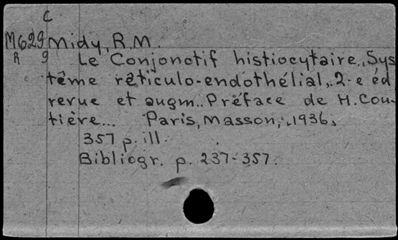 C
M629 Midy, R.M.
R 9 Le Conjonctif histiocytaire., Sys
tême réticulo-endothélial,. 2-e éd
revue et augm.. Préface de H. Cou-
tière... Paris, Masson,. 1936.
357 p. ill.
Bibliogr. p. 237-357.